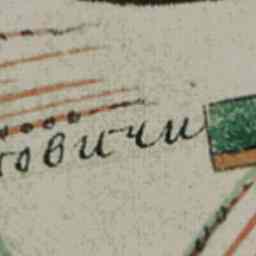 товичи